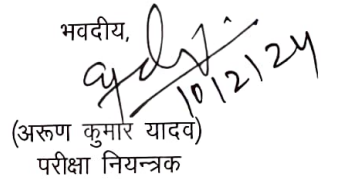 भवदीय,
10/2/24
(अरूण कुमार यादव)
परीक्षा नियन्त्रक